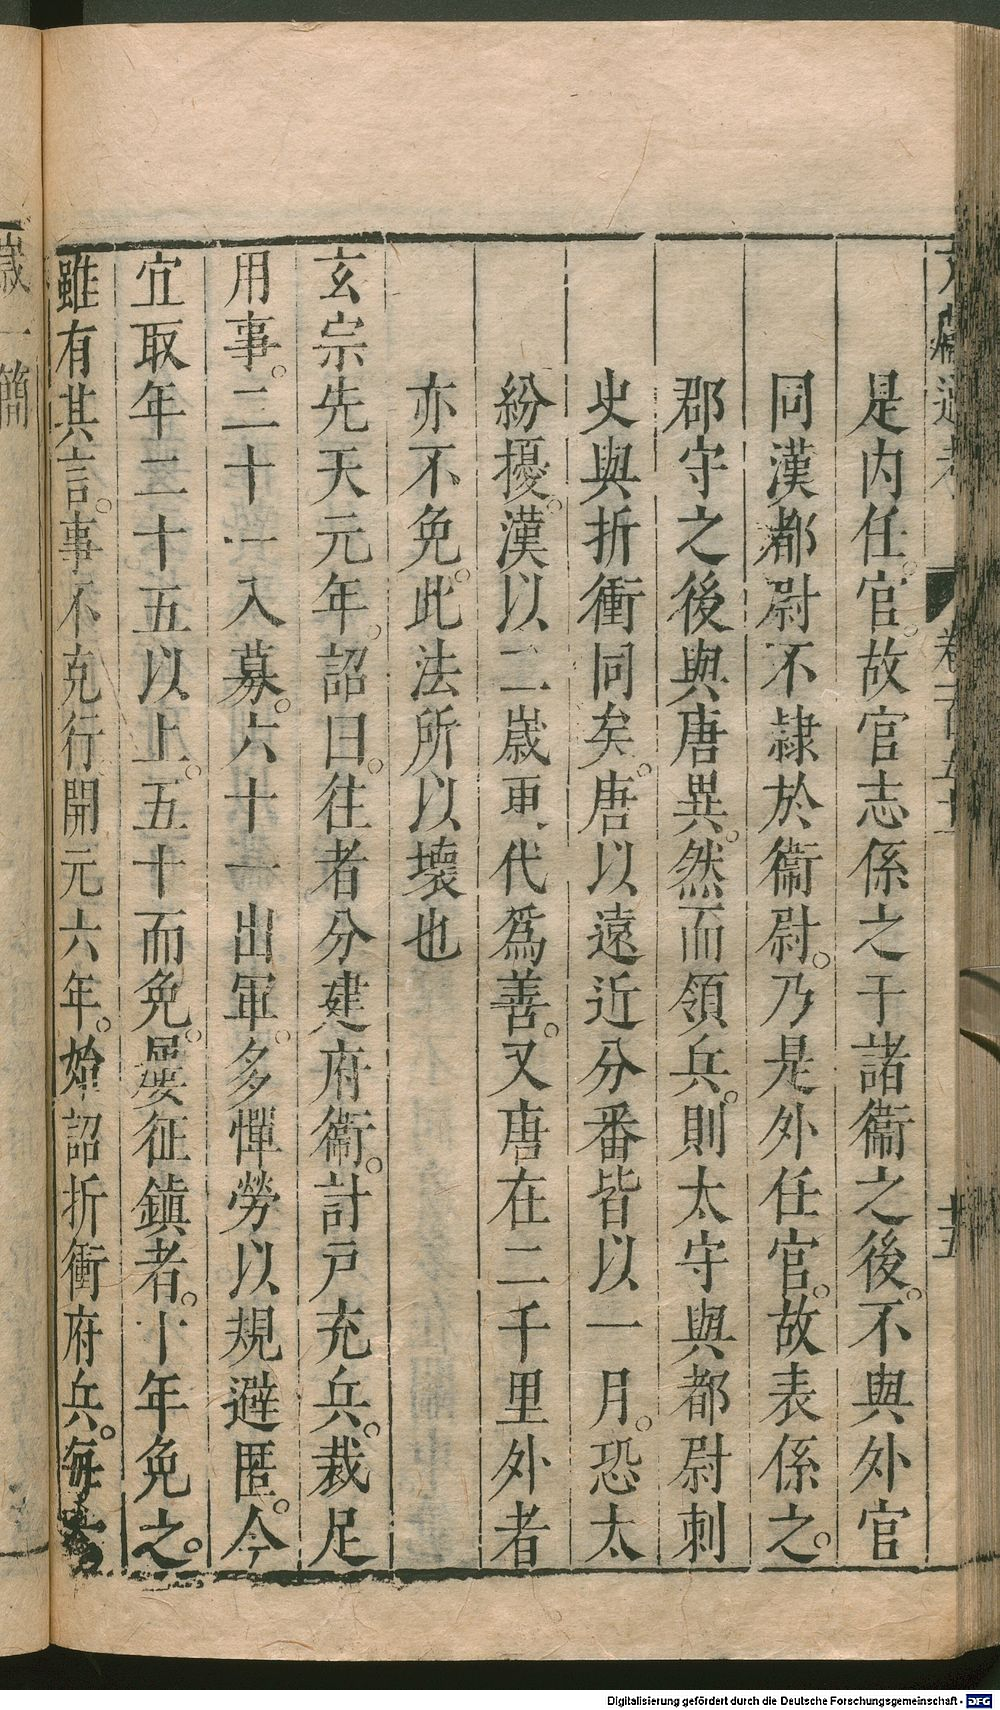 是内任官。故官志係之于諸衞之後。不與外官
同漢都尉不隷於衞尉。乃是外任官。故表係之。
郡守之後與唐異。然而領兵。則太守與都尉刺
史與折衝同矣。唐以遠近分番皆以一月。恐太
紛擾。漢以一歲更代爲善。又唐在二千里外者
亦不免。此法所以壞也
玄宗先天元年。詔曰。往者分建府衞。計戸充兵。裁足
用事。二十一入募。六十一出軍。多憚勞以規避匿。今
宜取年二十五以上。五十而免。屢征鎮者。十年免之。
雖有其言。事不克行開元六年。始詔折衝府兵。每
歲一簡
Digitalisierung gefördert durch die Deutsche Forschungsgemeinschaft - DFG